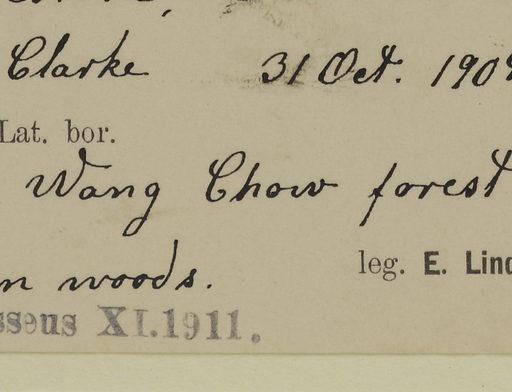 Clarke 31 Oct. 190
Lat. bor.
Wang Chow forest
n woods.
leg. E. Lind
sseus XI.1911.